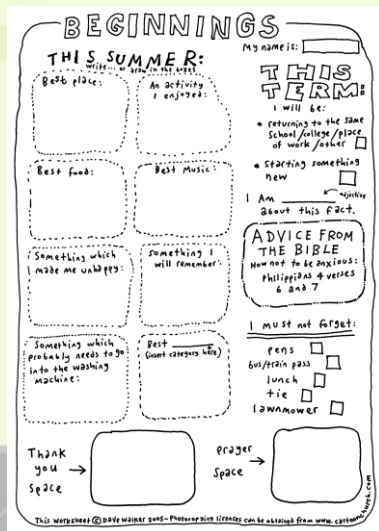 BEGINNINGS
THIS SUMMER:
write... or draw in the boxes
Best place:
An activity
I enjoyed:
Best food:
Best Music:
Something which
made me unhappy:
Something I
will remember:
Something which
probably needs to go
into the washing
machine:
Best ______
(insert category here)
My name is:
THIS
TERM:
I will be:
• returning to the same
school/college/place
of work/other
• Starting something
new
adjective
I Am ______
about this fact.
ADVICE FROM
THE BIBLE
How not to be anxious:
Philippians 4 verses
6 and 7
I must not forget:
pens
bus/train pass
lunch
tie
lawnmower
Thank
you
Space
prayer
Space
This worksheet © Dave Walker 2005 - Photocopying licences can be obtained from www.cartoonchurch.com